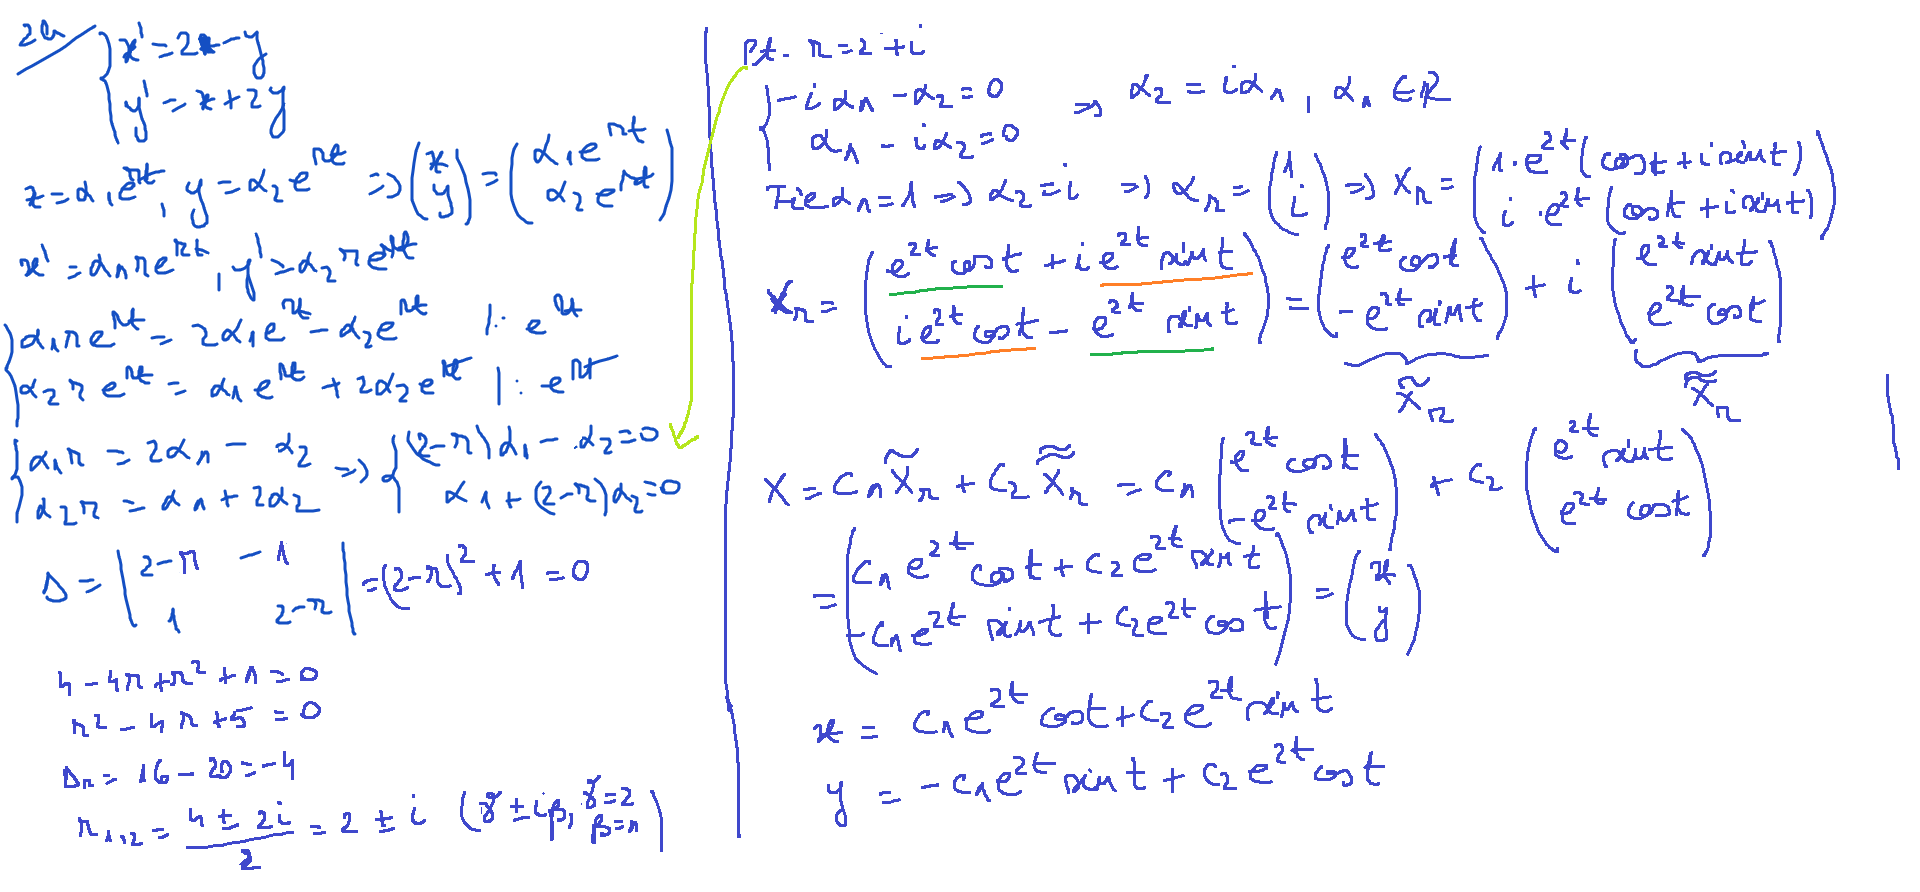 2a
{ x' = 2x - y
y' = x + 2y
x = α₁e^{rt}, y = α₂e^{rt} => (x y) = (α₁e^{rt} α₂e^{rt})
x' = α₁re^{rt}, y' = α₂re^{rt}
{ α₁re^{rt} = 2α₁e^{rt} - α₂e^{rt} |: e^{rt}
α₂re^{rt} = α₁e^{rt} + 2α₂e^{rt} |: e^{rt}
{ α₁r = 2α₁ - α₂ => { (2-r)α₁ - α₂ = 0
α₂r = α₁ + 2α₂ α₁ + (2-r)α₂ = 0
Δ = | 2-r -1 | = (2-r)² + 1 = 0
1 2-r
4 - 4r + r² + 1 = 0
r² - 4r + 5 = 0
Δr = 16 - 20 = -4
r₁,₂ = (4 ± 2i)/2 = 2 ± i (γ ± iβ, γ = 2 β = 1)
Pt. r = 2 + i
{ -iα₁ - α₂ = 0 => α₂ = iα₁, α₁ ∈ R
α₁ - iα₂ = 0
Fie α₁ = 1 => α₂ = i => αr = (1 i) => Xr = (1·e^{2t}(cost + i sint) i·e^{2t}(cost + i sint))
Xr = (e^{2t}cost + i e^{2t}sint i e^{2t}cost - e^{2t}sint) = (e^{2t}cost -e^{2t}sint) + i (e^{2t}sint e^{2t}cost)
X̃r X̃̃r
X = C₁X̃r + C₂X̃̃r = C₁ (e^{2t}cost -e^{2t}sint) + C₂ (e^{2t}sint e^{2t}cost)
= (C₁e^{2t}cost + C₂e^{2t}sint -C₁e^{2t}sint + C₂e^{2t}cost) = (x y)
x = C₁e^{2t}cost + C₂e^{2t}sint
y = -C₁e^{2t}sint + C₂e^{2t}cost